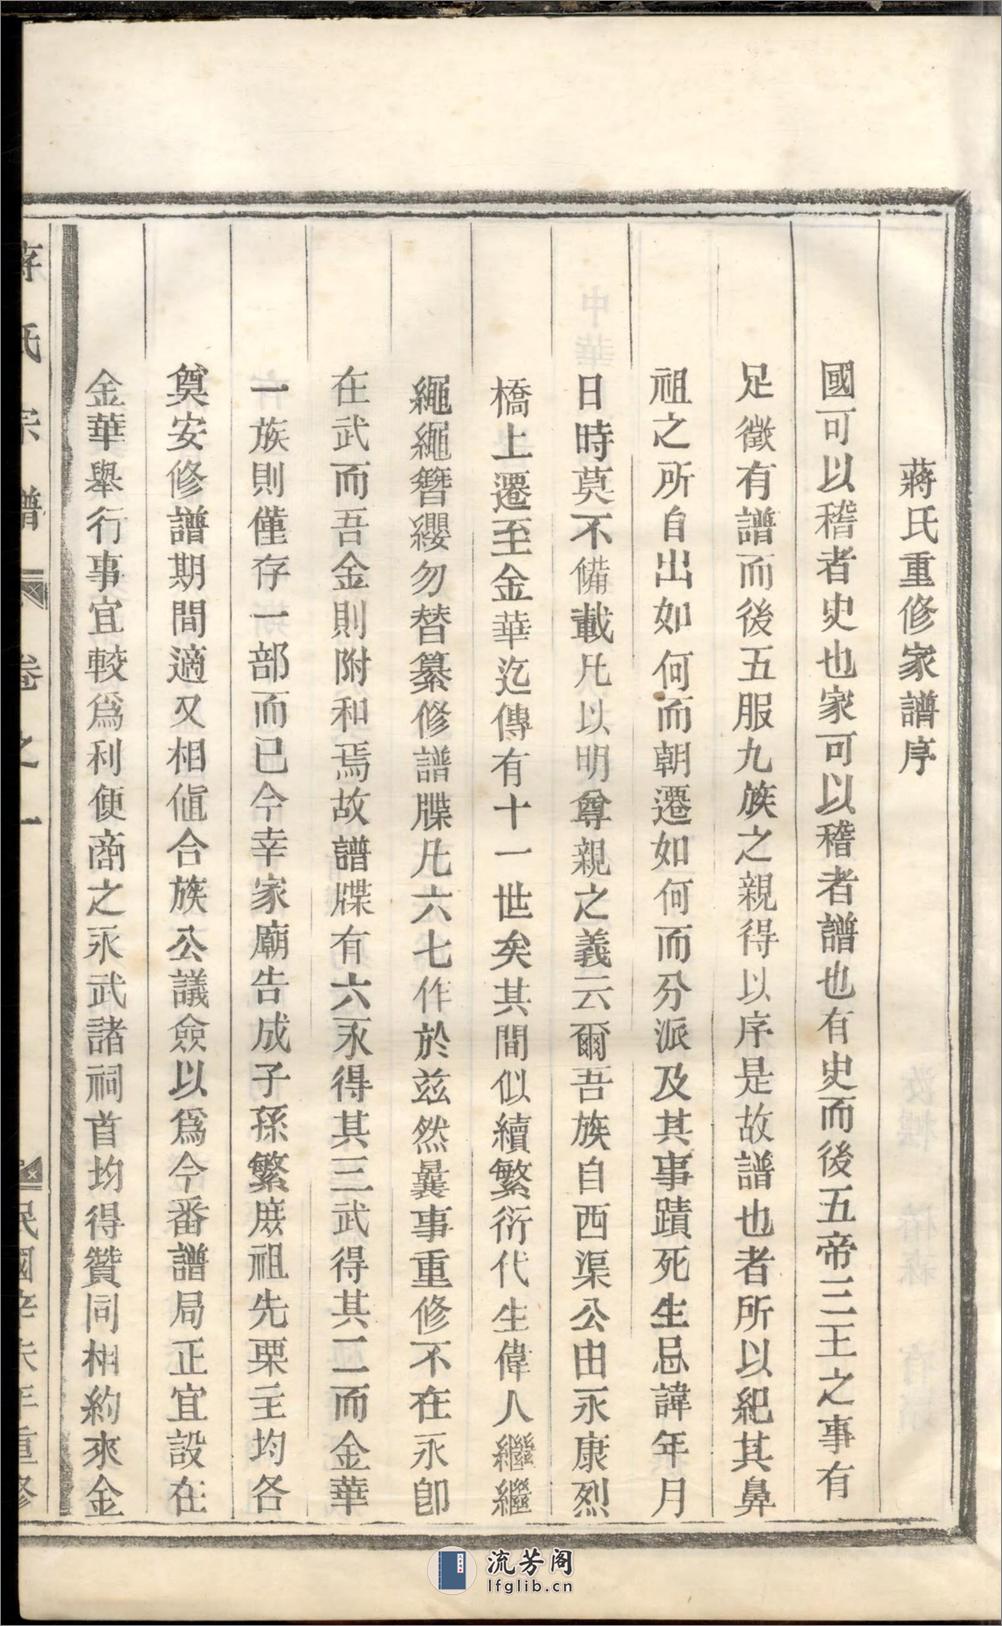 蔣氏重修家譜序
國可以稽者史也家可以稽者譜也有史而後五帝三王之事有
足徵有譜而後五服九族之親得以序是故譜也者所以紀其鼻
祖之所自出如何而朝遷如何而分派及其事蹟死生忌諱年月
日時莫不備載凡以明尊親之義云爾吾族自西渠公由永康烈
橋上遷至金華迄傳有十一世矣其間似續繁衍代生偉人繼繼
繩繩簪纓勿替纂修譜牒凡六七作於兹然曩事重修不在永卽
在武而吾金則附和焉故譜牒有六永得其三武得其二而金華
一族則僅存一部而已今幸家廟告成子孫繁庶祖先栗主均各
奠安修譜期間適又相值合族公議僉以爲今番譜局正宜設在
金華舉行事宜較爲利便商之永武諸祠首均得贊同相約來金
蔣氏宗譜 卷之一 民國辛未年重修
流芳阁
lfglib.cn